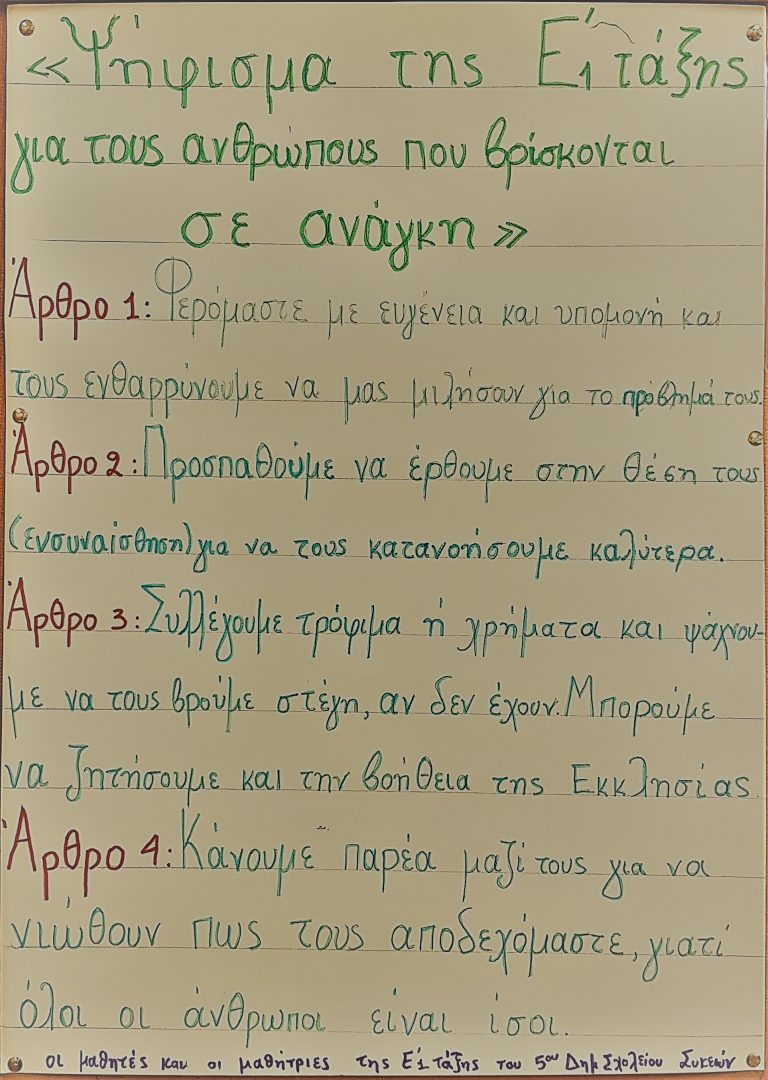 «Ψήφισμα της Ε΄1 τάξης
για τους ανθρώπους που βρίσκονται
σε ανάγκη»
Άρθρο 1: Φερόμαστε με ευγένεια και υπομονή και
τους ενθαρρύνουμε να μας μιλήσουν για το πρόβλημά τους.
Άρθρο 2: Προσπαθούμε να έρθουμε στην θέση τους
(ενσυναίσθηση) για να τους κατανοήσουμε καλύτερα.
Άρθρο 3: Συλλέγουμε τρόφιμα ή χρήματα και ψάχνου-
με να τους βρούμε στέγη, αν δεν έχουν. Μπορούμε
να ζητήσουμε και την βοήθεια της Εκκλησίας.
Άρθρο 4: Κάνουμε παρέα μαζί τους για να
νιώθουν πως τους αποδεχόμαστε, γιατί
όλοι οι άνθρωποι είναι ίσοι.
οι μαθητές και οι μαθήτριες της Ε΄1 τάξης του 5ου Δημ Σχολείου Συκεών